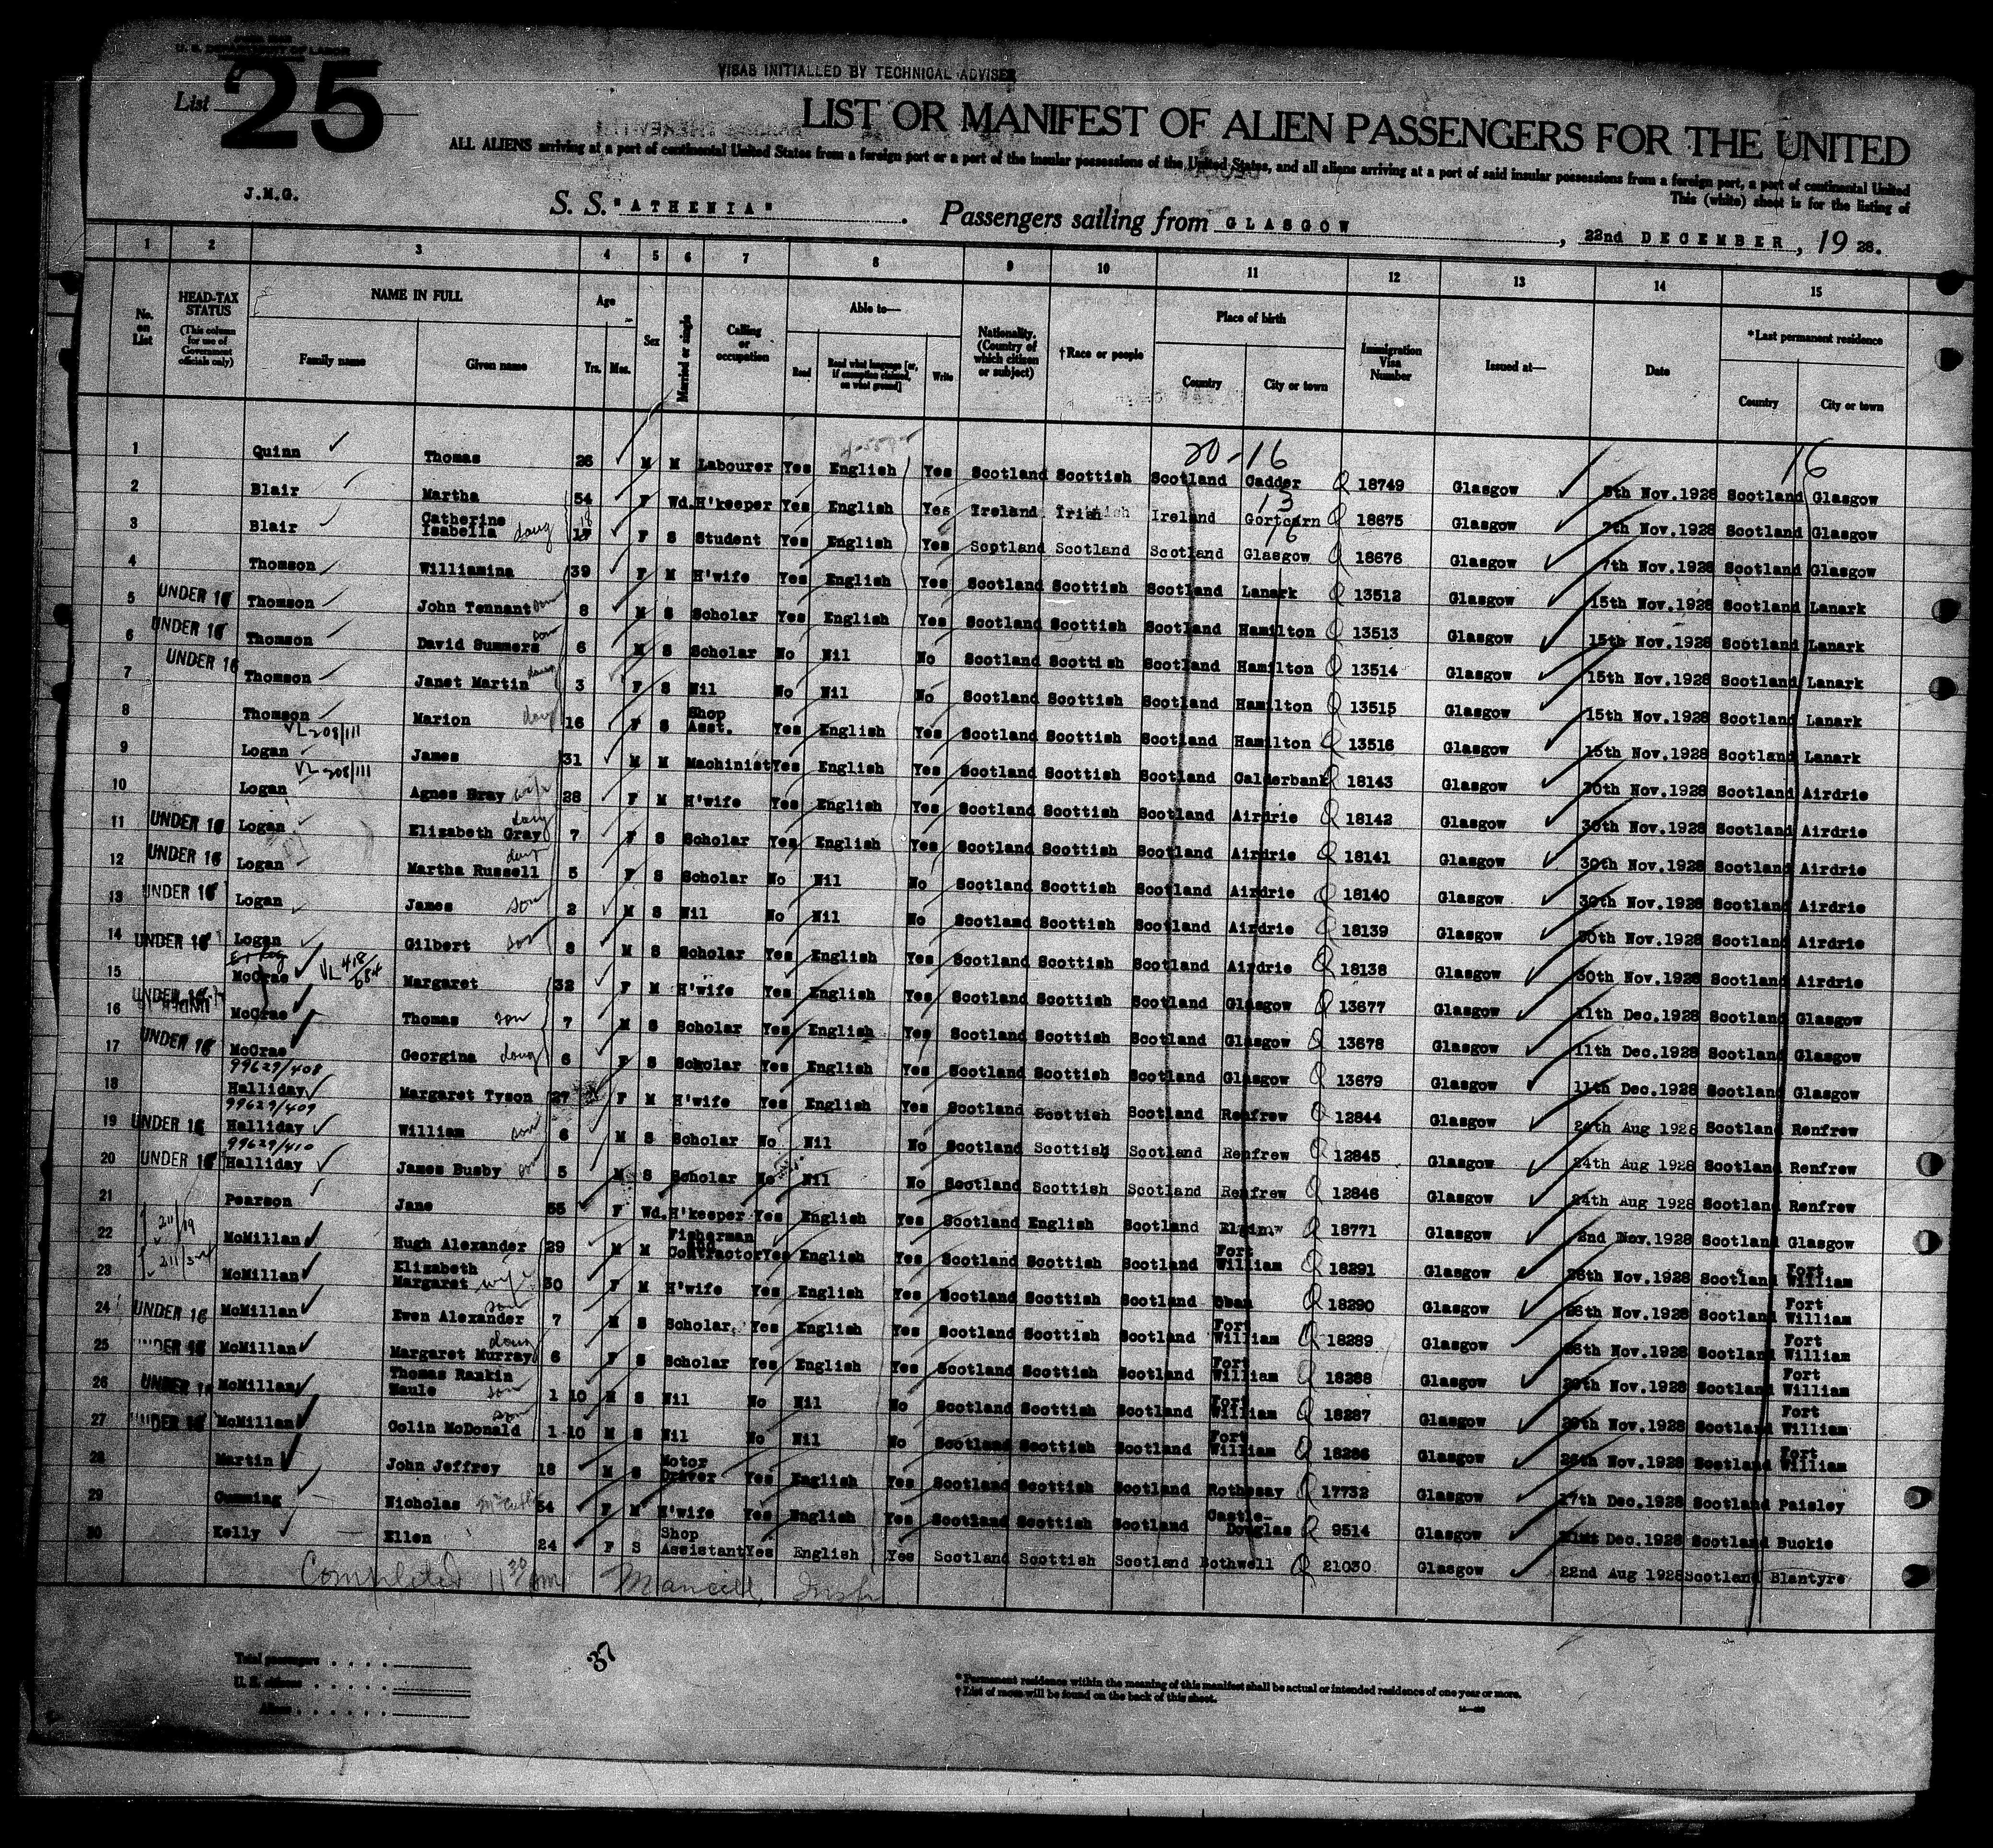 U. S. DEPARTMENT OF LABOR
List 25
VISAS INITIALLED BY TECHNICAL ADVISER
LIST OR MANIFEST OF ALIEN PASSENGERS FOR THE UNITED
ALL ALIENS arriving at a port of continental United States from a foreign port or a port of the insular possessions of the United States, and all aliens arriving at a port of said insular possessions from a foreign port, a port of continental United
This (white) sheet is for the listing of
J.M.G.
S. S. "ATHENIA" Passengers sailing from GLASGOW, 22nd DECEMBER, 1928.
1 2 3 4 5 6 7 8 9 10 11 12 13 14 15
No. on List
HEAD-TAX STATUS (This column for use of Government officials only)
NAME IN FULL Family name Given name
Age Yrs. Mos.
Sex
Married or single
Calling or occupation
Able to— Read Read what language [or, if exemption claimed, on what ground] Write
Nationality. (Country of which citizen or subject)
†Race or people
Place of birth Country City or town
Immigration Visa Number
Issued at—
Date
*Last permanent residence Country City or town
20-16 16
1 Quinn Thomas 26 M M Labourer Yes English Yes Scotland Scottish Scotland Cadder 18749 Glasgow 8th Nov.1928 Scotland Glasgow
13
2 Blair Martha 54 F Wd. H'keeper Yes English Yes Ireland Irish Ireland 18675 Glasgow 7th Nov.1928 Scotland Glasgow
16
3 Blair Catherine Isabella daug 18 17 F S Student Yes English Yes Scotland Scotland Scotland Glasgow 18676 Glasgow 7th Nov.1928 Scotland Glasgow
4 Thomson Williamina 39 F M H'wife Yes English Yes Scotland Scottish Scotland Lanark 13512 Glasgow 15th Nov.1928 Scotland Lanark
5 UNDER 16 Thomson John Tennant son 8 M S Scholar Yes English Yes Scotland Scottish Scotland Hamilton 13513 Glasgow 15th Nov.1928 Scotland Lanark
6 UNDER 16 Thomson David Summers son 6 M S Scholar No Nil No Scotland Scottish Scotland Hamilton 13514 Glasgow 15th Nov.1928 Scotland Lanark
7 UNDER 16 Thomson Janet Martin daug 3 F S Nil No Nil No Scotland Scottish Scotland Hamilton 13515 Glasgow 15th Nov.1928 Scotland Lanark
8 Thomson Marion daug 16 F S Shop Asst. Yes English Yes Scotland Scottish Scotland Hamilton 13516 Glasgow 15th Nov.1928 Scotland Lanark
VL 208/111
9 Logan James 31 M M Machinist Yes English Yes Scotland Scottish Scotland Calderbank 18143 Glasgow 30th Nov.1928 Scotland Airdrie
VL 208/111
10 Logan Agnes Bray wife 28 F M H'wife Yes English Yes Scotland Scottish Scotland Airdrie 18142 Glasgow 30th Nov.1928 Scotland Airdrie
11 UNDER 16 Logan Elizabeth Gray daug 7 F S Scholar Yes English Yes Scotland Scottish Scotland Airdrie 18141 Glasgow 30th Nov.1928 Scotland Airdrie
12 UNDER 16 Logan Martha Russell daug 5 F S Scholar No Nil No Scotland Scottish Scotland Airdrie 18140 Glasgow 30th Nov.1928 Scotland Airdrie
13 UNDER 16 Logan James son 2 M S Nil No Nil No Scotland Scottish Scotland Airdrie 18139 Glasgow 30th Nov.1928 Scotland Airdrie
14 UNDER 16 Logan Gilbert son 8 M S Scholar Yes English Yes Scotland Scottish Scotland Airdrie 18138 Glasgow 30th Nov.1928 Scotland Airdrie
15 McCrae VL 418/684 Margaret 32 F M H'wife Yes English Yes Scotland Scottish Scotland Glasgow 13677 Glasgow 11th Dec.1928 Scotland Glasgow
16 UNDER 16 McCrae Thomas son 7 M S Scholar Yes English Yes Scotland Scottish Scotland Glasgow 13678 Glasgow 11th Dec.1928 Scotland Glasgow
17 UNDER 16 McCrae Georgina daug 6 F S Scholar Yes English Yes Scotland Scottish Scotland Glasgow 13679 Glasgow 11th Dec.1928 Scotland Glasgow
99629/408
18 Halliday Margaret Tyson 27 F M H'wife Yes English Yes Scotland Scottish Scotland Renfrew 12844 Glasgow 24th Aug 1928 Scotland Renfrew
99629/409
19 UNDER 16 Halliday William son 6 M S Scholar No Nil No Scotland Scottish Scotland Renfrew 12845 Glasgow 24th Aug 1928 Scotland Renfrew
99629/410
20 UNDER 16 Halliday James Busby son 5 M S Scholar No Nil No Scotland Scottish Scotland Renfrew 12846 Glasgow 24th Aug 1928 Scotland Renfrew
21 Pearson Jane 55 F Wd. H'keeper Yes English Yes Scotland English Scotland Elgin 18771 Glasgow 2nd Nov.1928 Scotland Glasgow
22 211/19 McMillan Hugh Alexander 29 M M Fisherman Contractor Yes English Yes Scotland Scottish Scotland Fort William 18291 Glasgow 26th Nov.1928 Scotland Fort William
23 McMillan Elizabeth Margaret wife 30 F M H'wife Yes English Yes Scotland Scottish Scotland Oban 18290 Glasgow 26th Nov.1928 Scotland Fort William
24 UNDER 16 McMillan Ewen Alexander son 7 M S Scholar Yes English Yes Scotland Scottish Scotland Fort William 18289 Glasgow 26th Nov.1928 Scotland Fort William
25 UNDER 16 McMillan Margaret Murray daug 6 F S Scholar Yes English Yes Scotland Scottish Scotland Fort William 18288 Glasgow Nov.1928 Scotland Fort William
26 UNDER 16 McMillan Thomas Rankin Maule son 1 10 M S Nil No Nil No Scotland Scottish Scotland Fort William 18287 Glasgow Nov.1928 Scotland Fort William
27 UNDER 16 McMillan Colin McDonald son 1 10 M S Nil No Nil No Scotland Scottish Scotland Fort William 18286 Glasgow 26th Nov.1928 Scotland Fort William
28 Martin John Jeffrey 18 M S Motor Driver Yes English Yes Scotland Scottish Scotland Rothesay 17732 Glasgow 17th Dec.1928 Scotland Paisley
29 Cumming Nicholas 54 F M H'wife Yes English Yes Scotland Scottish Scotland Castle-Douglas 9514 Glasgow 21st Dec.1928 Scotland Buckie
30 Kelly Ellen 24 F S Shop Assistant Yes English Yes Scotland Scottish Scotland Bothwell 21030 Glasgow 22nd Aug 1928 Scotland Blantyre
Completed 11 30 pm Insp
37
Total passengers
U. S. citizens
Aliens
*Permanent residence within the meaning of this manifest shall be actual or intended residence of one year or more.
†List of races will be found on the back of this sheet.